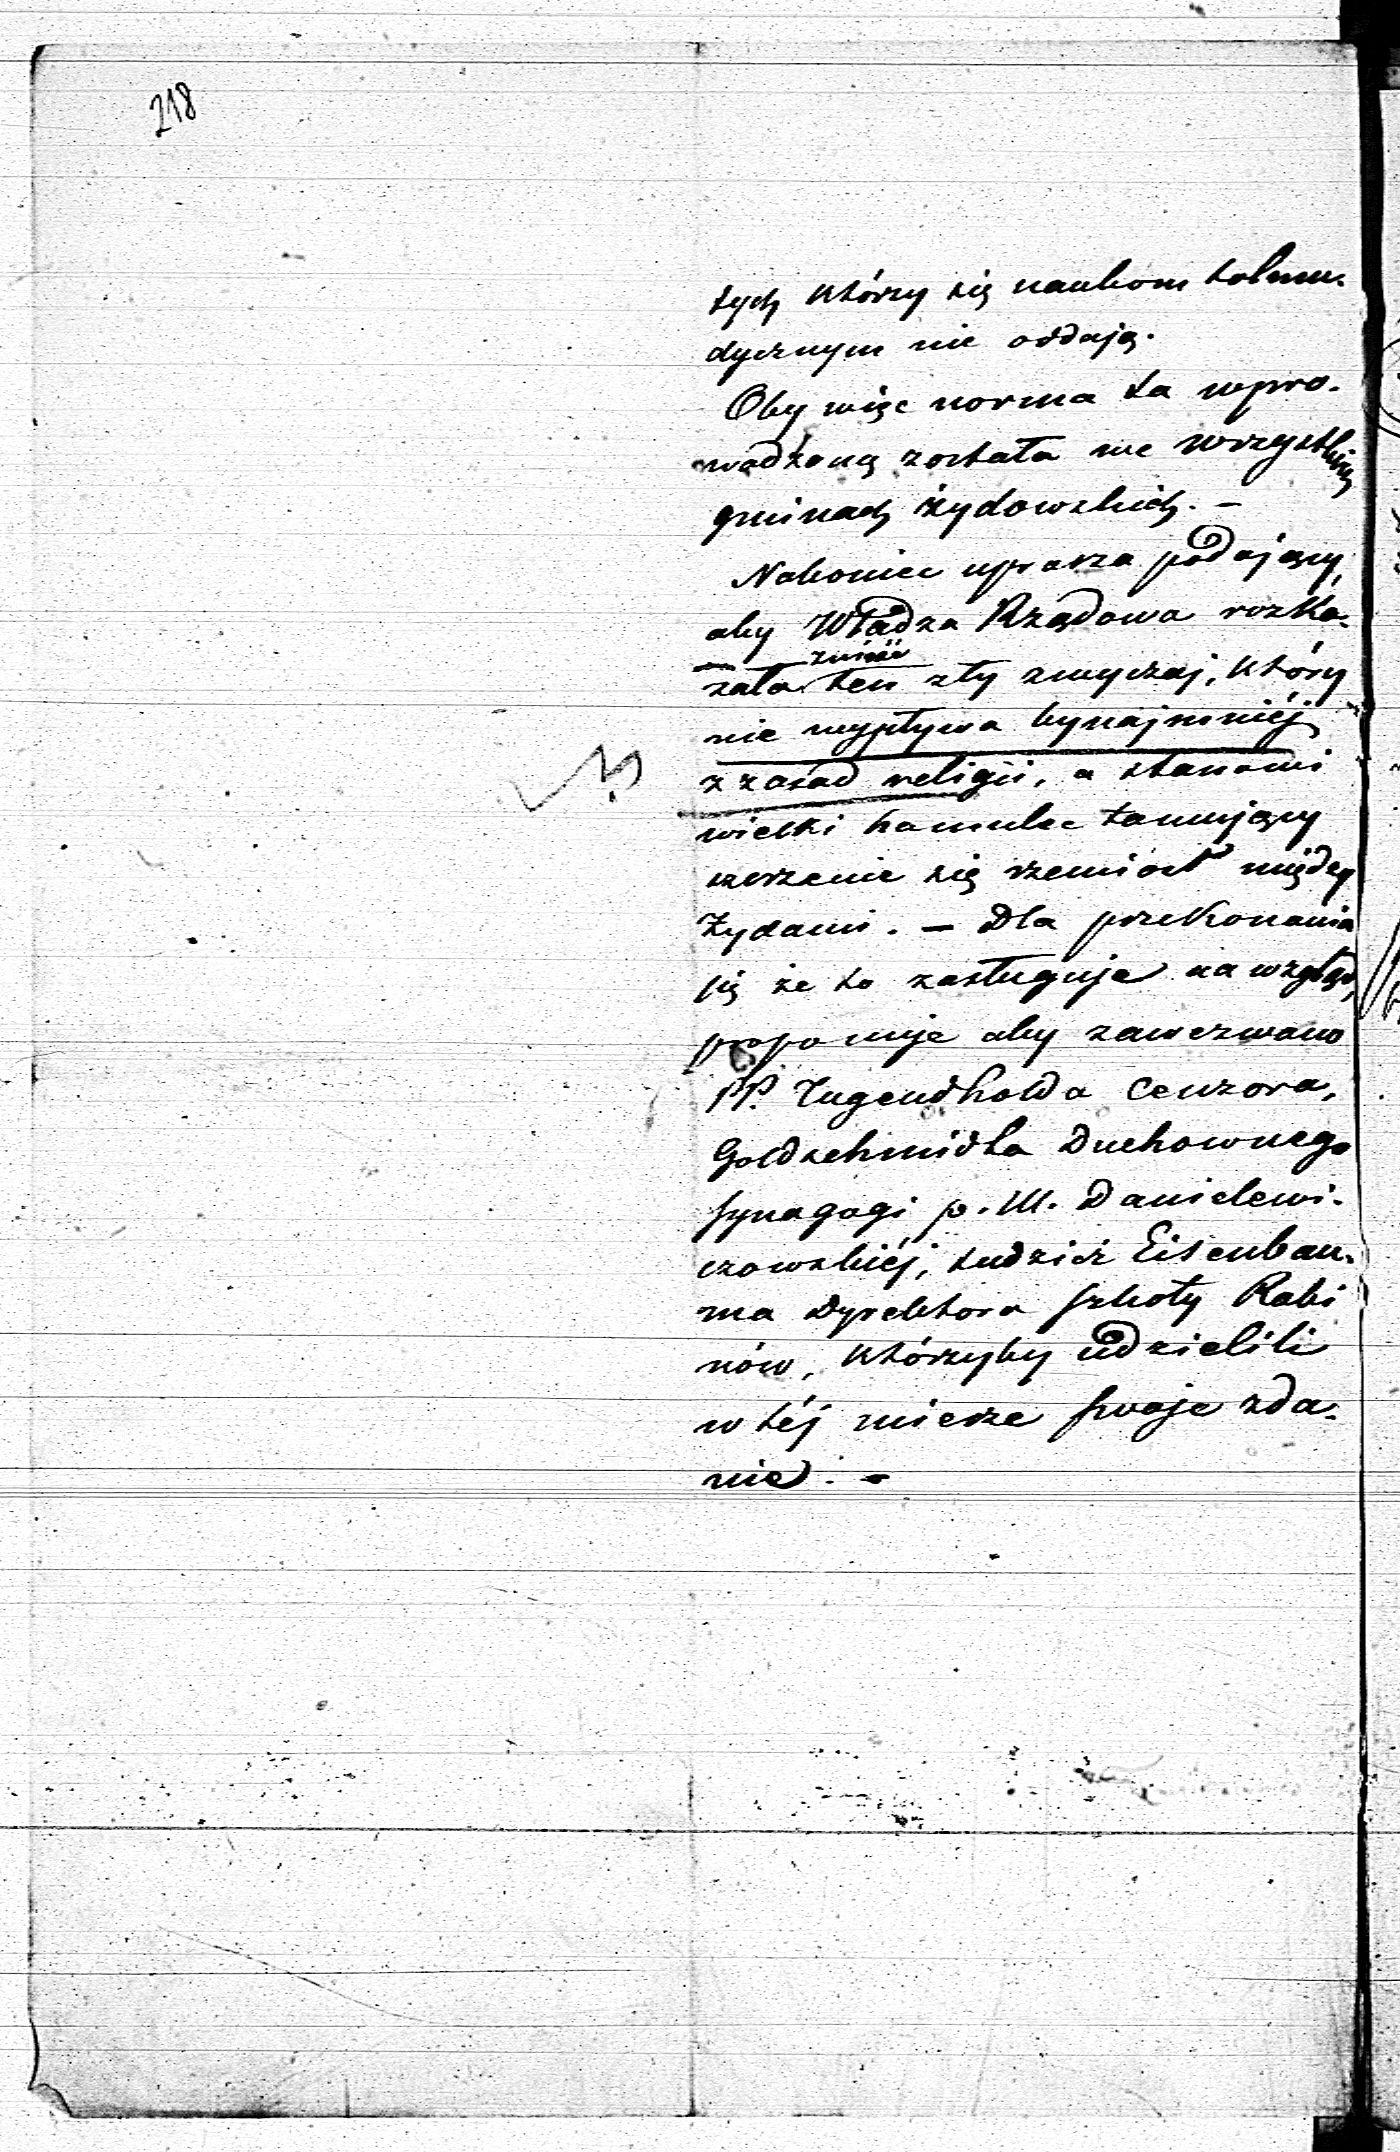 218
tych którzy się naukom talmu-
dycznym nie oddają.
Oby więc norma ta wpro-
wadzoną została we wszystkich
gminach żydowskich. -
Nakoniec uprasza podający,
aby Władza Rządowa rozka-
znieść
zała ten zły zwyczaj, który
nie wypływa bynajmniéj
z zasad religii, a stanowi
wielki hamulec tamujący
szerzenie się rzemiosł między
Żydami. - Dla przekonania
się że to zasługuje na wzgląd,
proponuje aby zawezwano
PP. Tugendholda Cenzora,
Goldschmidta Duchownego
synagogi p. M. Danielewi-
czowskiéj, tudzież Eisenbau-
ma Dyrektora szkoły Rabi
nów, którzyby udzielili
w téj mierze swoje zda-
nie. -